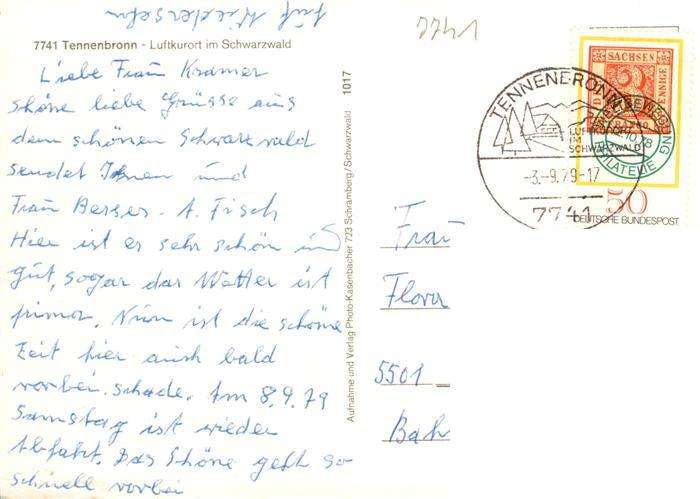 auf Wiedersehn
7741
7741 Tennenbronn - Luftkurort im Schwarzwald
Liebe Frau Kramer
schöne liebe Grüsse aus
dem schönen Schwarzwald
sendet Ihnen und
Frau Berger. A. Fisch
Hier ist es sehr schön und
gut, sogar das Wetter ist
prima. Nun ist die schöne
Zeit hier auch bald
vorbei. schade. Am 8.9.79
Samstag ist wieder
Abfahrt. Das Schöne geht so
schnell vorbei
1017
Aufnahme und Verlag Photo-Kasenbacher 723 Schramberg/Schwarzwald
TENNENBRONN
LUFTKURORT
IM
SCHWARZWALD
-3.-9.79-17
7741
SACHSEN
PFENNIGE
3
PHILATELIE
50
DEUTSCHE BUNDESPOST
Frau
Flora
5501
Bah